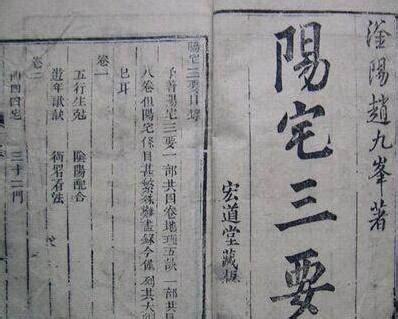 滏陽趙九峯著
陽宅三要
宏道堂藏板
陽宅三要目錄
予著陽宅三要一部共四卷地理五訣一部共
八卷但陽宅條目甚繁殊難盡錄今僅列其大
耳
卷一
五行生尅 陰陽配合
遊年歌訣
卷二
四宅 三十二門